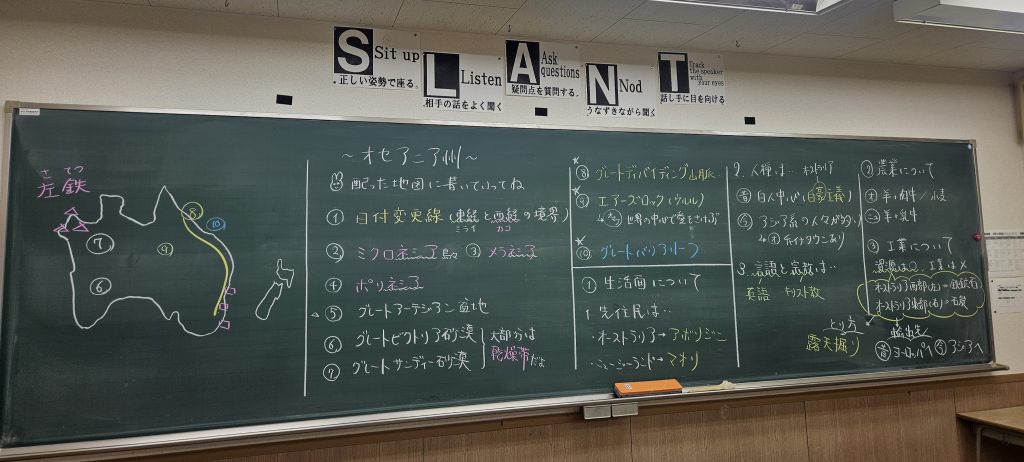 S Sit up
正しい姿勢で座る。
L Listen
相手の話をよく聞く
A Ask questions
疑問点を質問する。
N Nod
うなずきながら聞く
T Track the speaker with your eyes
話し手に目を向ける
さ てつ
左 鉄
⑧
⑩
⑨
⑦
⑥
～オセアニア州～
配った地図に書いていってね
① 日付変更線(東経と西経の境界)
ミライ カコ
② ミクロネシア島々 ③ メラネシア
④ ポリネシア
⑤ グレートアーテジアン盆地
⑥ グレートビクトリア砂漠
⑦ グレートサンディー砂漠
大部分は
乾燥帯だよ
⑧ グレートディバイディング山脈
⑨ エアーズロック(ウルル)
世界の中心で愛をさけぶ
⑩ グレートバリアリーフ
① 生活面について
1. 先住民は…
・オーストラリア→アボリジニー
・ニュージーランド→マオリ
2. 人種は… オーストラリア
昔 白人中心(白豪主義)
今 アジア系の人々が多い
チャイナタウンあり
3. 言語と宗教は…
英語 キリスト教
② 農業について
オ 羊・肉牛/小麦
ニ 羊・乳牛
③ 工業について
資源は○、工業は×
オーストラリア西部(左)=鉄鉱石
オーストラリア東部(右)=石炭
とり方
露天掘り
輸出先
昔 ヨーロッパ 今 アジアへ